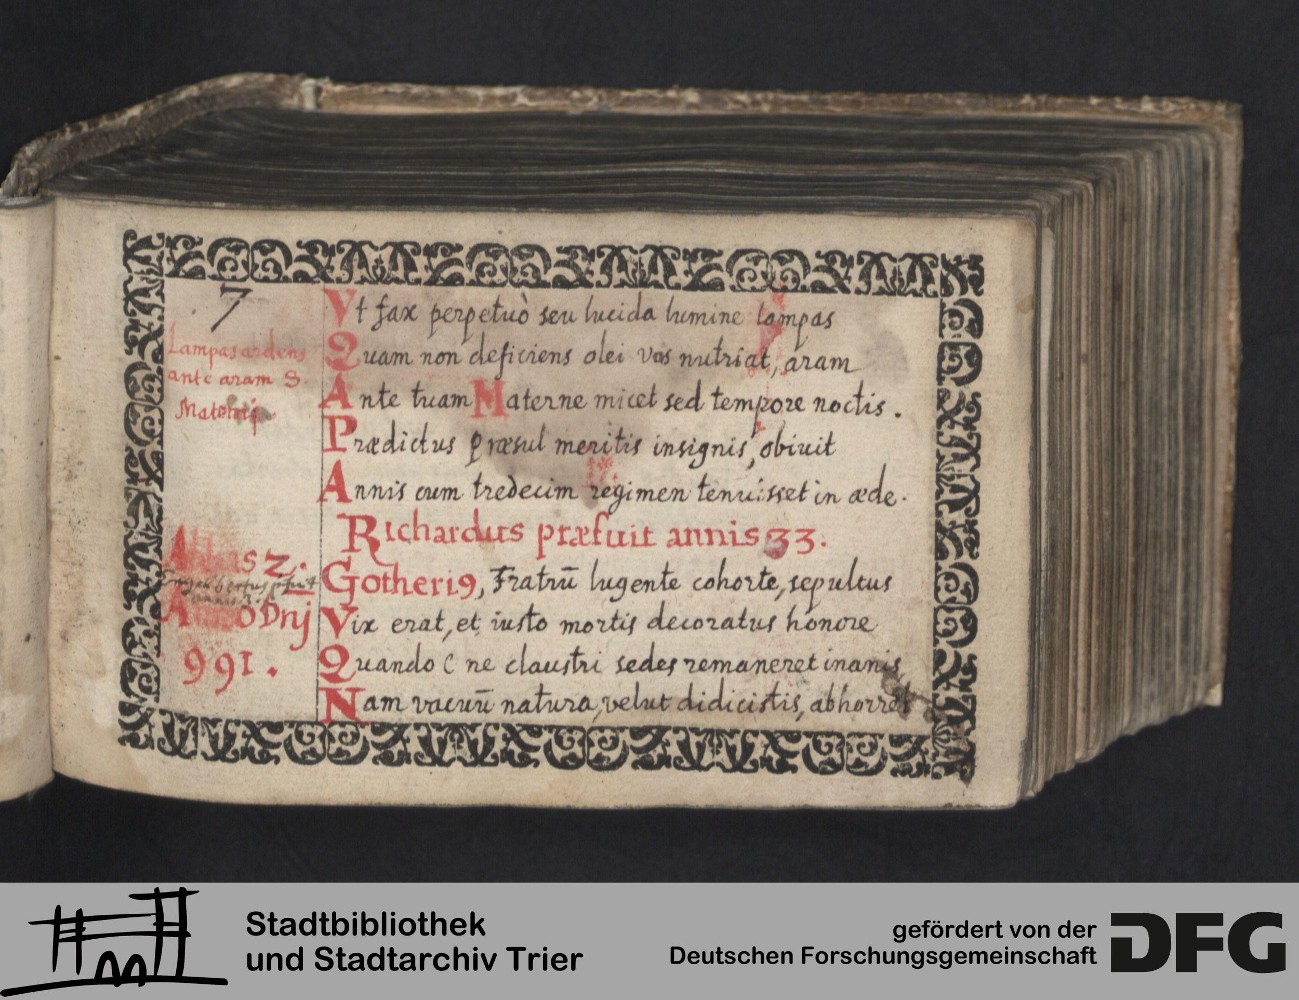 7
Lampas ardens
ante aram S.
Materni
Vt fax perpetuò seu lucida lumine lampas
Quam non deficiens olei vas nutriat, aram
Ante tuam Materne micet sed tempore noctis.
Prædictus præsul meritis insignis, obiuit
Annis cum tredecim regimen tenuisset in æde.
Richardus præfuit annis 33.
Abbas 2.
Engelbertus
Aō Dnj
991.
Gotheri9, Fratrū lugente cohorte, sepultus
Vix erat, et iusto mortis decoratus honore
Quando C ne claustri sedes remaneret inanis,
Nam vacuū natura, velut didicistis, abhorret
Stadtbibliothek
und Stadtarchiv Trier
gefördert von der
Deutschen Forschungsgemeinschaft
DFG